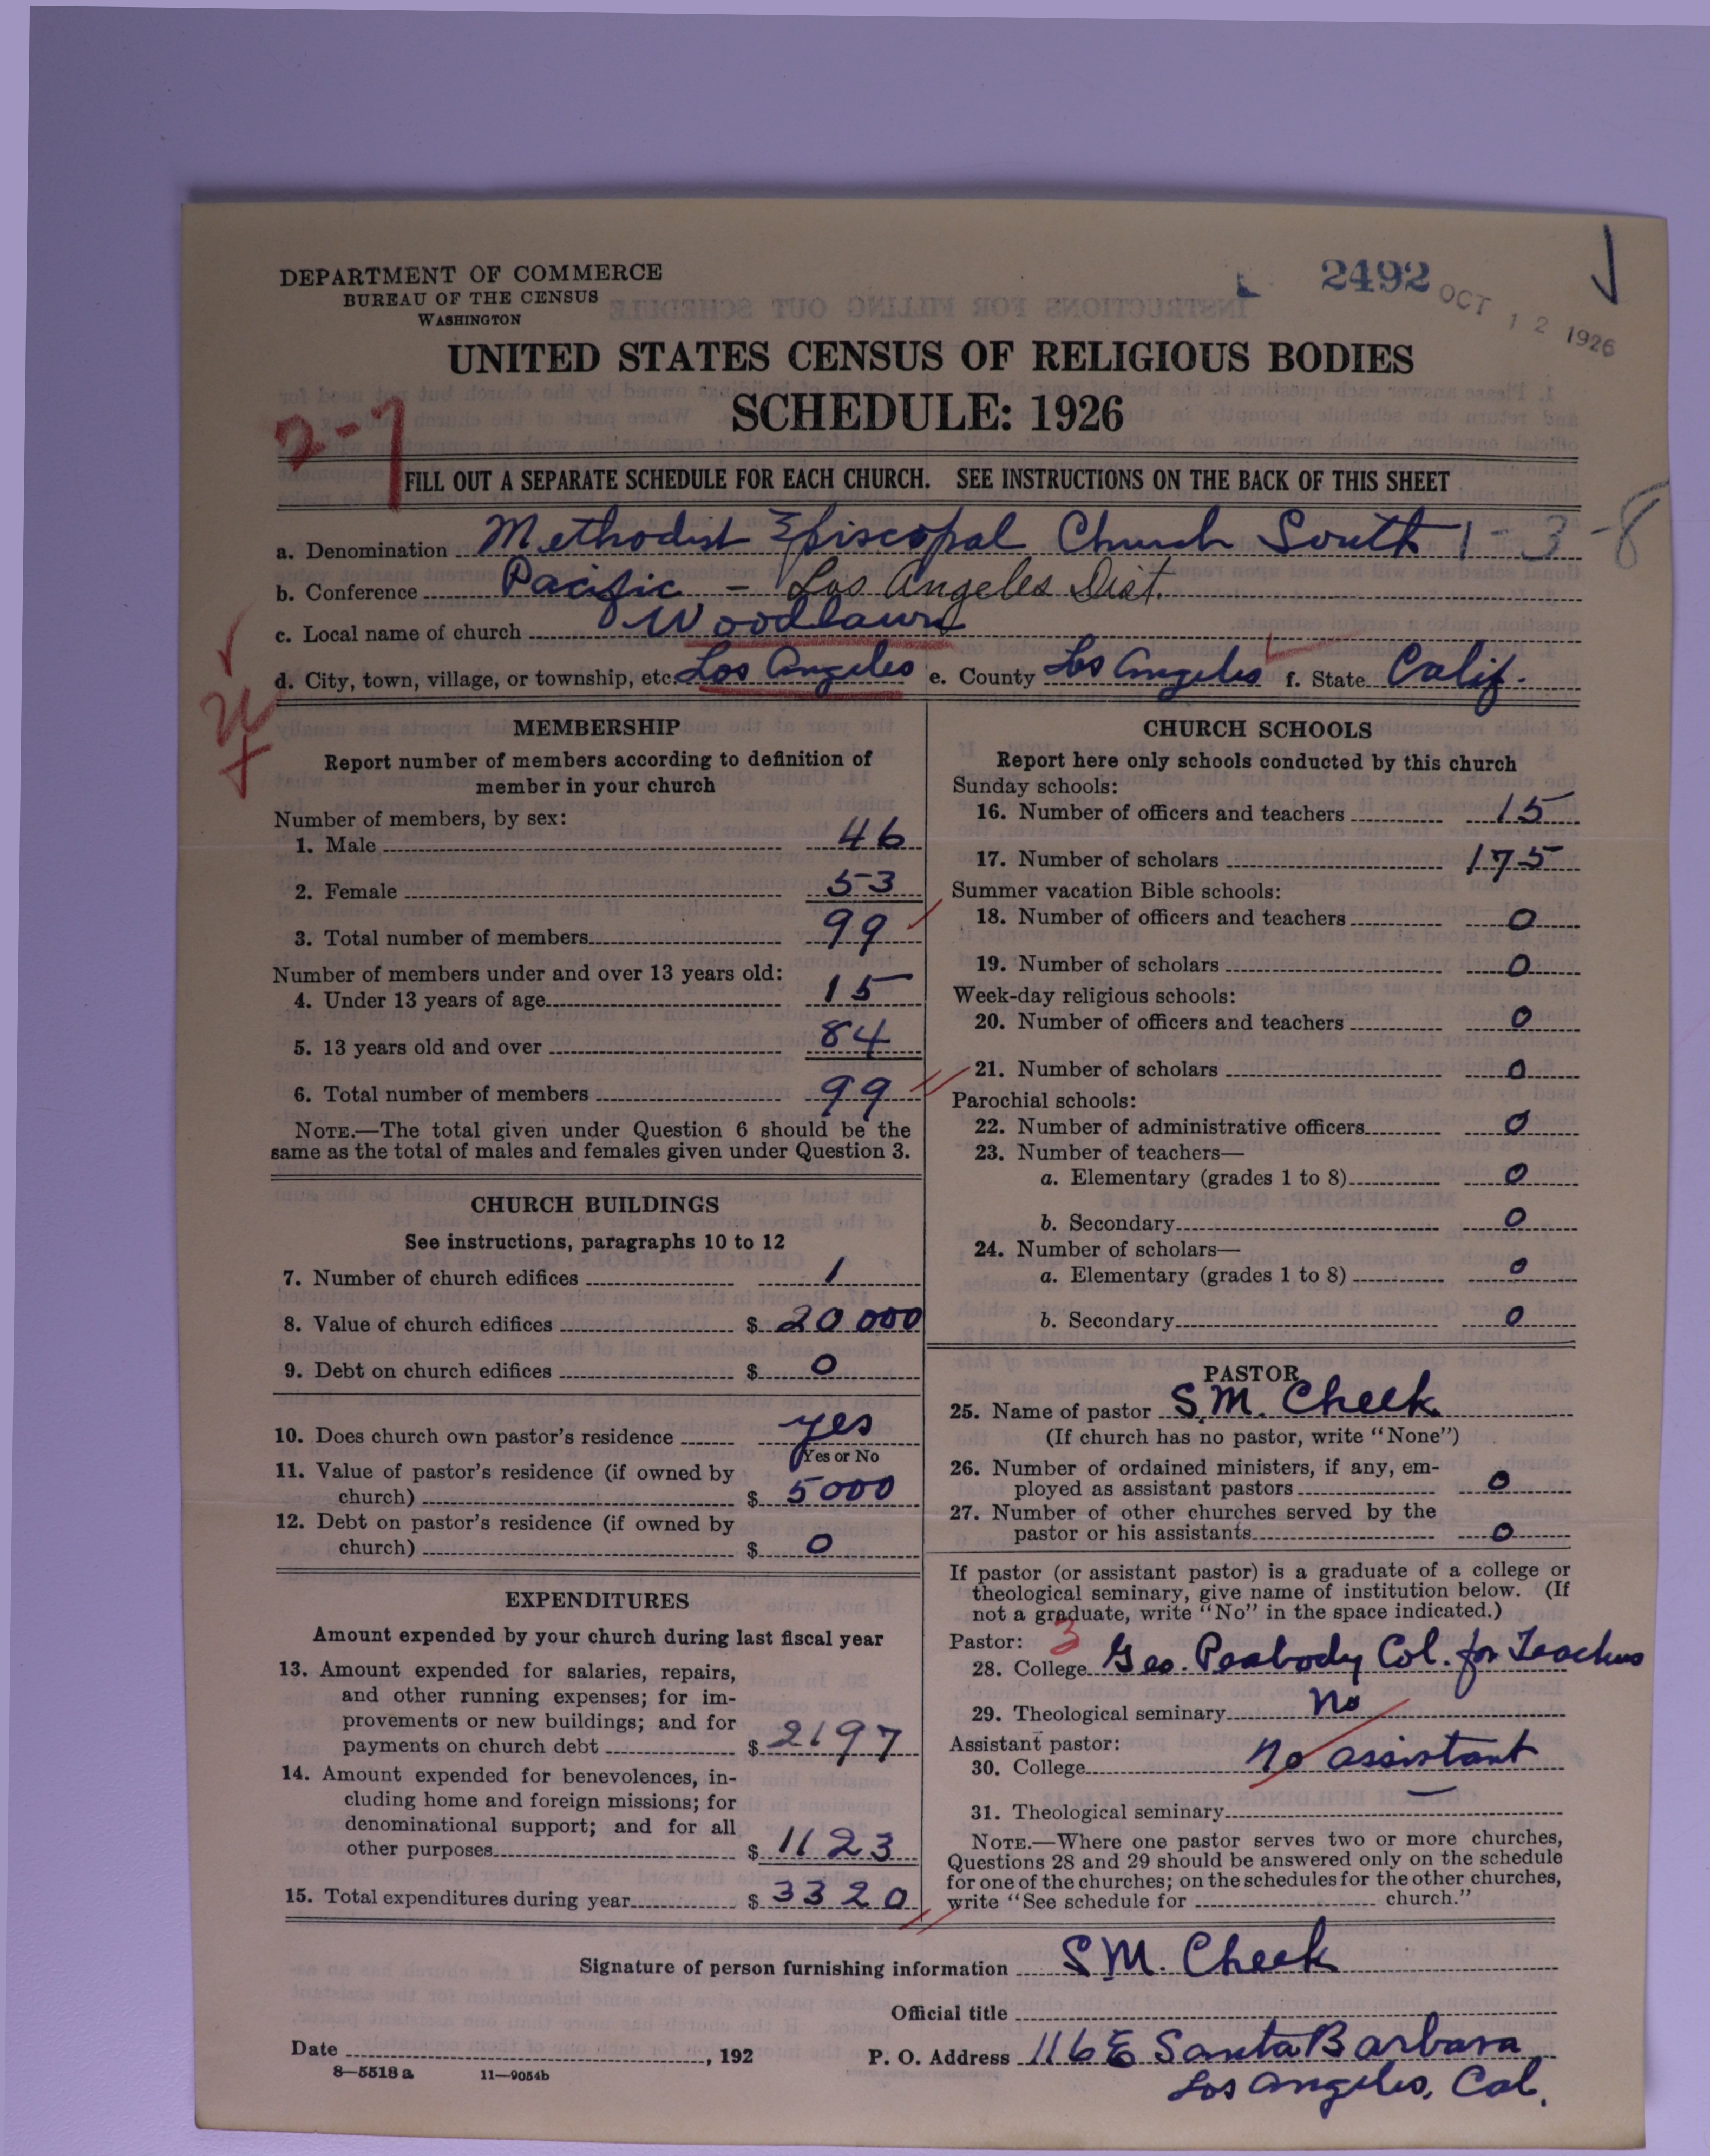 DEPARTMENT OF COMMERCE
BUREAU OF THE CENSUS
WASHINGTON
2492
OCT 12 1926
UNITED STATES CENSUS OF RELIGIOUS BODIES
SCHEDULE: 1926
2-7
FILL OUT A SEPARATE SCHEDULE FOR EACH CHURCH. SEE INSTRUCTIONS ON THE BACK OF THIS SHEET
a. Denomination Methodist Episcopal Church South 1-3-8
b. Conference Pacific - Los Angeles Dist.
c. Local name of church Woodlawn
d. City, town, village, or township, etc. Los Angeles e. County Los Angeles f. State Calif.
MEMBERSHIP
Report number of members according to definition of
member in your church
Number of members, by sex:
1. Male 46
2. Female 53
3. Total number of members 99
Number of members under and over 13 years old:
4. Under 13 years of age 15
5. 13 years old and over 84
6. Total number of members 99
NOTE.—The total given under Question 6 should be the
same as the total of males and females given under Question 3.
CHURCH BUILDINGS
See instructions, paragraphs 10 to 12
7. Number of church edifices 1
8. Value of church edifices $ 20 000
9. Debt on church edifices $ 0
10. Does church own pastor's residence yes
Yes or No
11. Value of pastor's residence (if owned by
church) $ 5000
12. Debt on pastor's residence (if owned by
church) $ 0
EXPENDITURES
Amount expended by your church during last fiscal year
13. Amount expended for salaries, repairs,
and other running expenses; for im-
provements or new buildings; and for
payments on church debt $ 2197
14. Amount expended for benevolences, in-
cluding home and foreign missions; for
denominational support; and for all
other purposes $ 1123
15. Total expenditures during year $ 3320
CHURCH SCHOOLS
Report here only schools conducted by this church
Sunday schools:
16. Number of officers and teachers 15
17. Number of scholars 175
Summer vacation Bible schools:
18. Number of officers and teachers 0
19. Number of scholars 0
Week-day religious schools:
20. Number of officers and teachers 0
21. Number of scholars 0
Parochial schools:
22. Number of administrative officers 0
23. Number of teachers—
a. Elementary (grades 1 to 8) 0
b. Secondary 0
24. Number of scholars—
a. Elementary (grades 1 to 8) 0
b. Secondary 0
PASTOR
25. Name of pastor S.M. Cheek
(If church has no pastor, write "None")
26. Number of ordained ministers, if any, em-
ployed as assistant pastors 0
27. Number of other churches served by the
pastor or his assistants 0
If pastor (or assistant pastor) is a graduate of a college or
theological seminary, give name of institution below. (If
not a graduate, write "No" in the space indicated.)
Pastor: 3
28. College Geo. Peabody Col. for Teachers
29. Theological seminary no
Assistant pastor:
30. College no assistant
31. Theological seminary —
NOTE.—Where one pastor serves two or more churches,
Questions 28 and 29 should be answered only on the schedule
for one of the churches; on the schedules for the other churches,
write "See schedule for church."
Signature of person furnishing information S.M. Cheek
Official title
Date , 192 P. O. Address 116 E Santa Barbara
Los Angeles, Cal.
8—5518 a 11—9054b